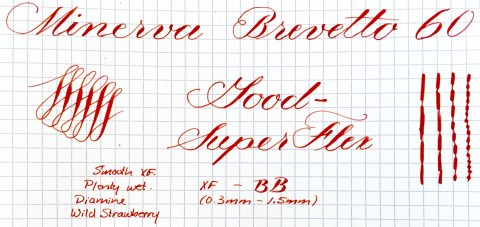 Minerva Brevetto 60
Good-
Super Flex
Smooth XF.
Plenty wet.
Diamine
Wild Strawberry
XF - BB
(0.3mm - 1.5mm)